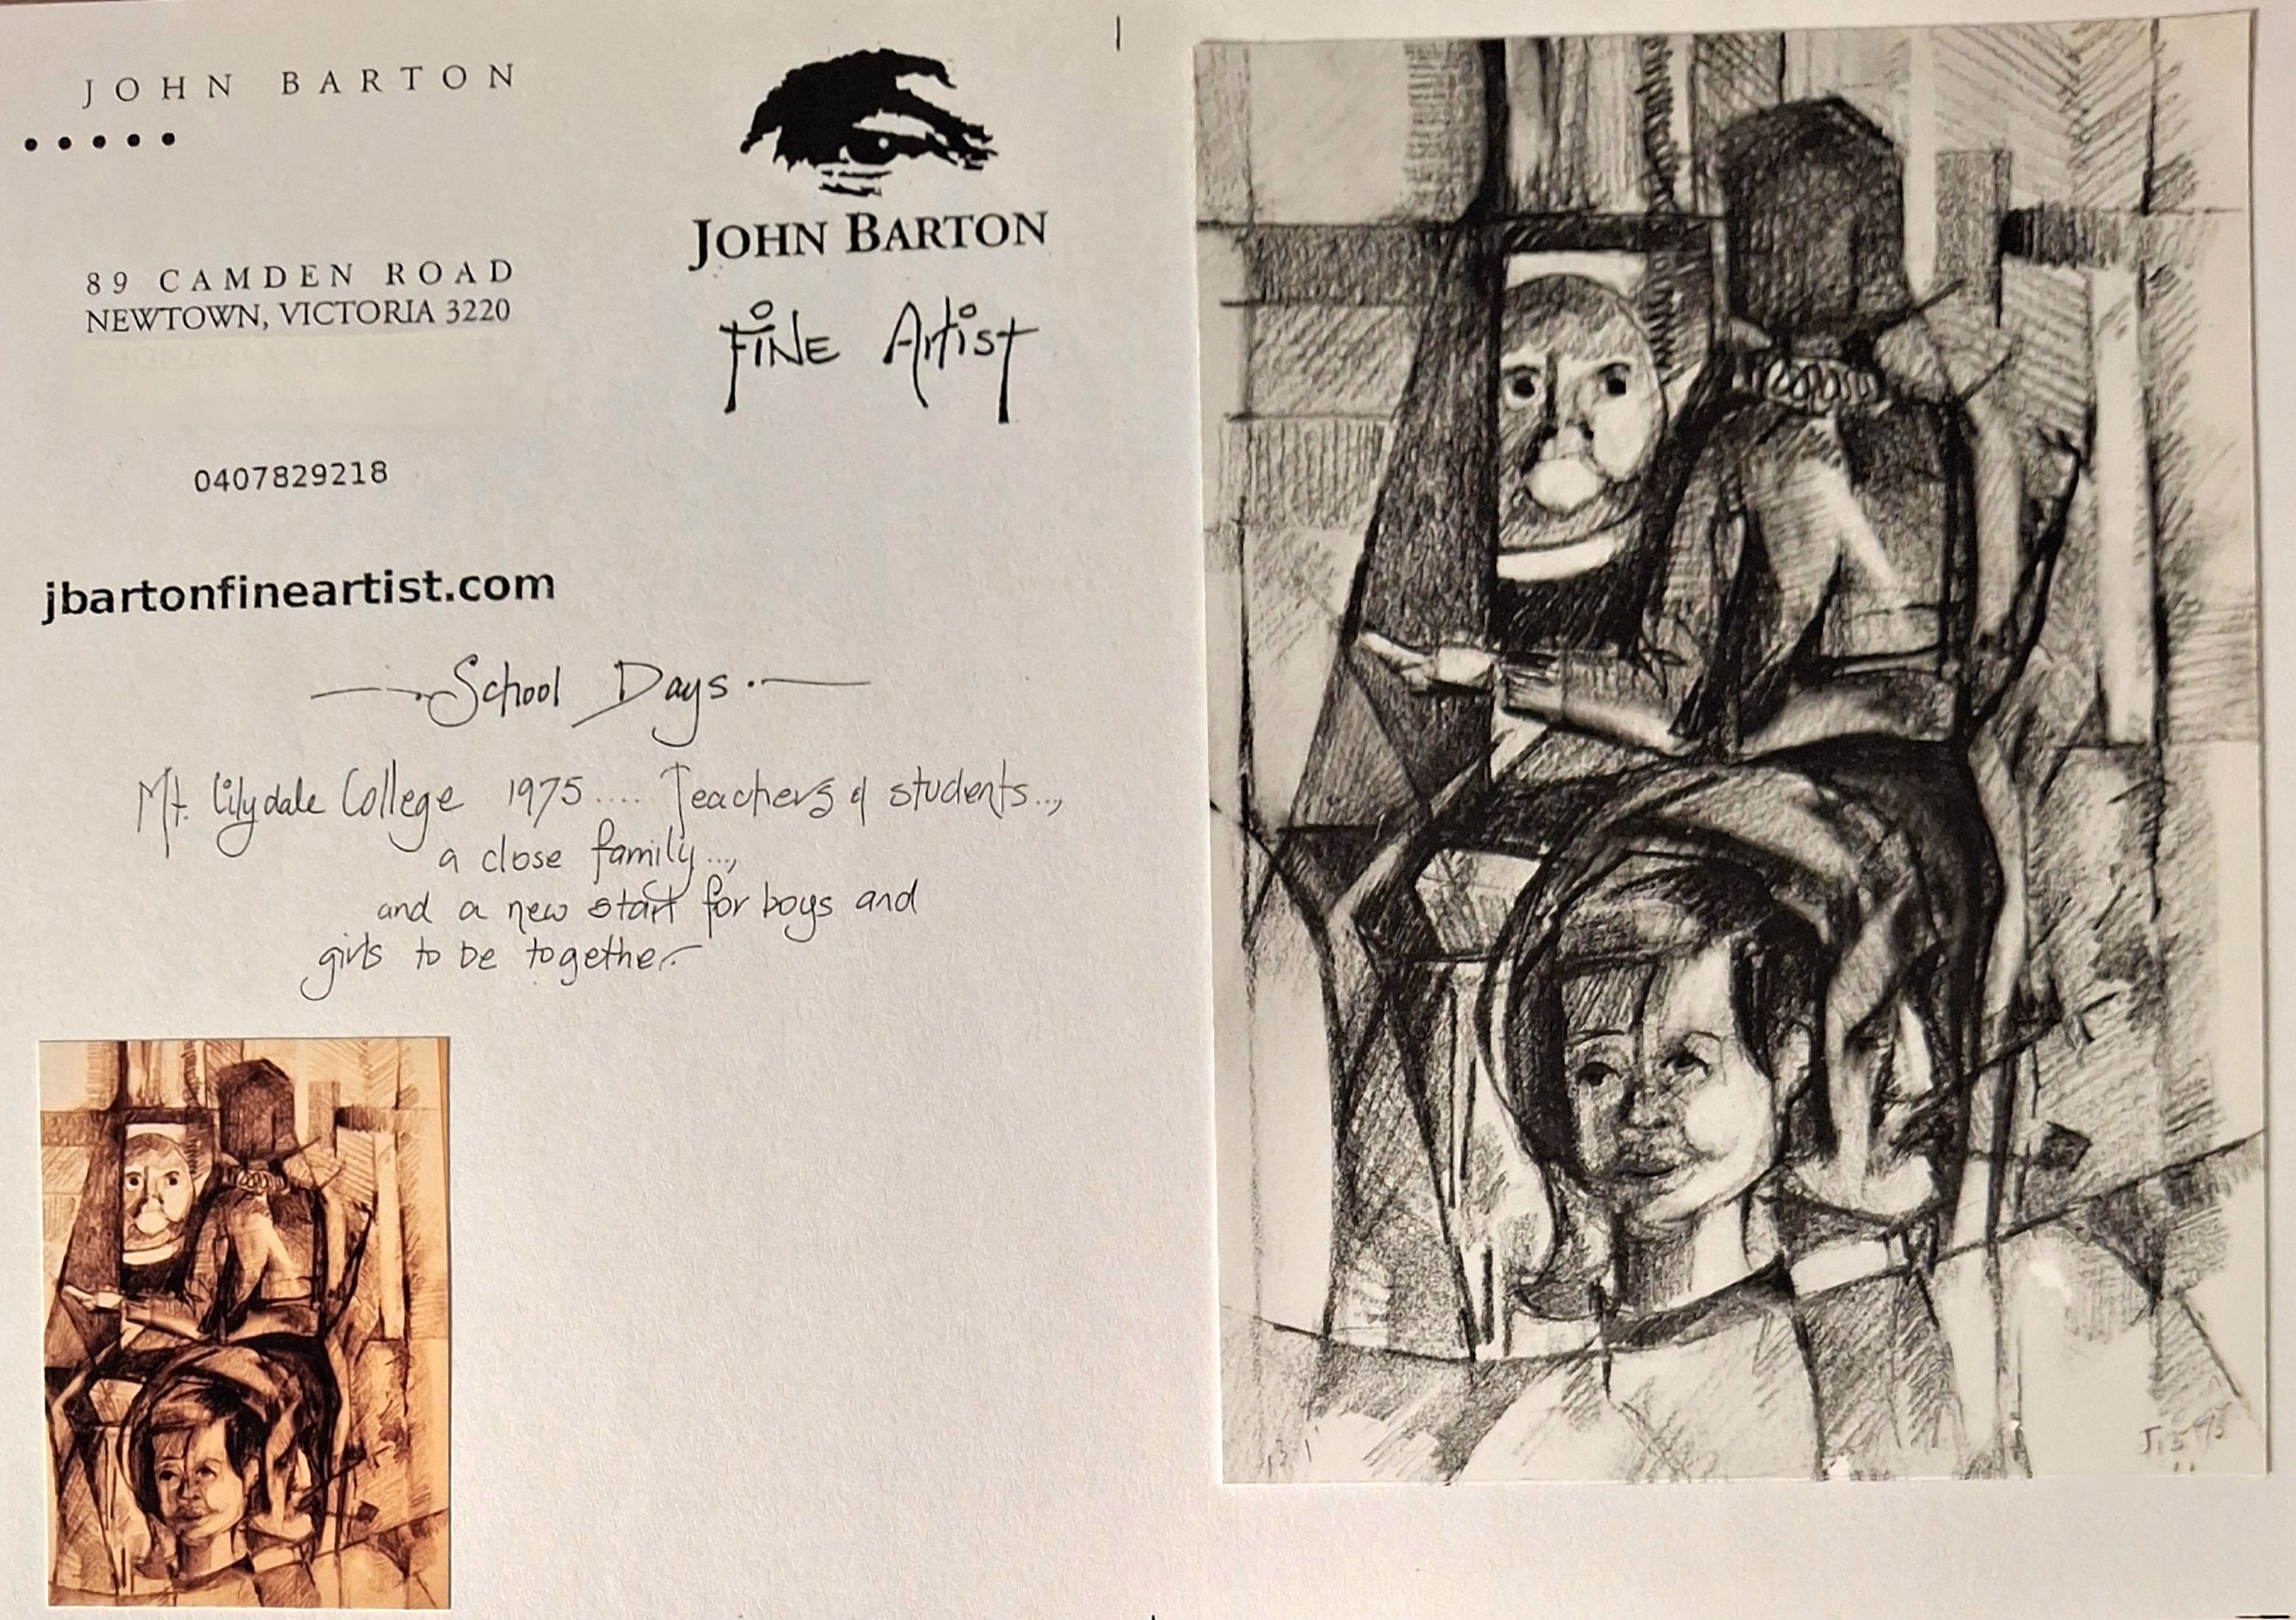 JOHN BARTON
89 CAMDEN ROAD
NEWTOWN, VICTORIA 3220
0407829218
jbartonfineartist.com
JOHN BARTON
FiNE Artist
School Days.
Mt. Lilydale College 1975.... Teachers & students...,
a close family...,
and a new start for boys and
girls to be together.